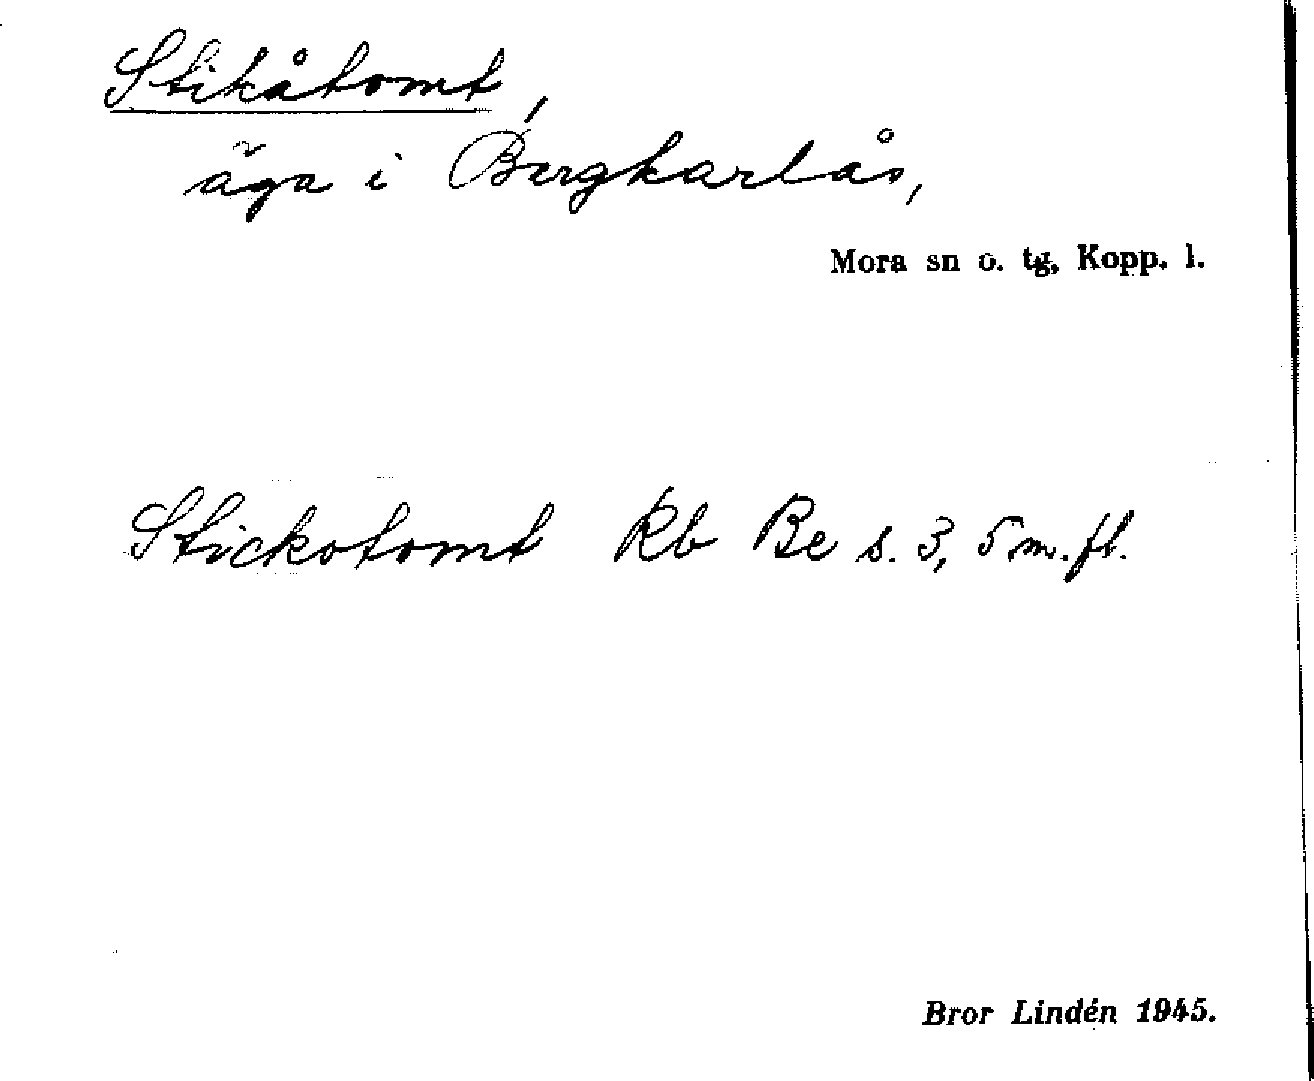 Stikåtomt,
äga i Bergkarlås,
Mora sn o. tg, Kopp. l.
Stickotomt Rb Be s. 3, 5 m. fl.
Bror Lindén 1945.